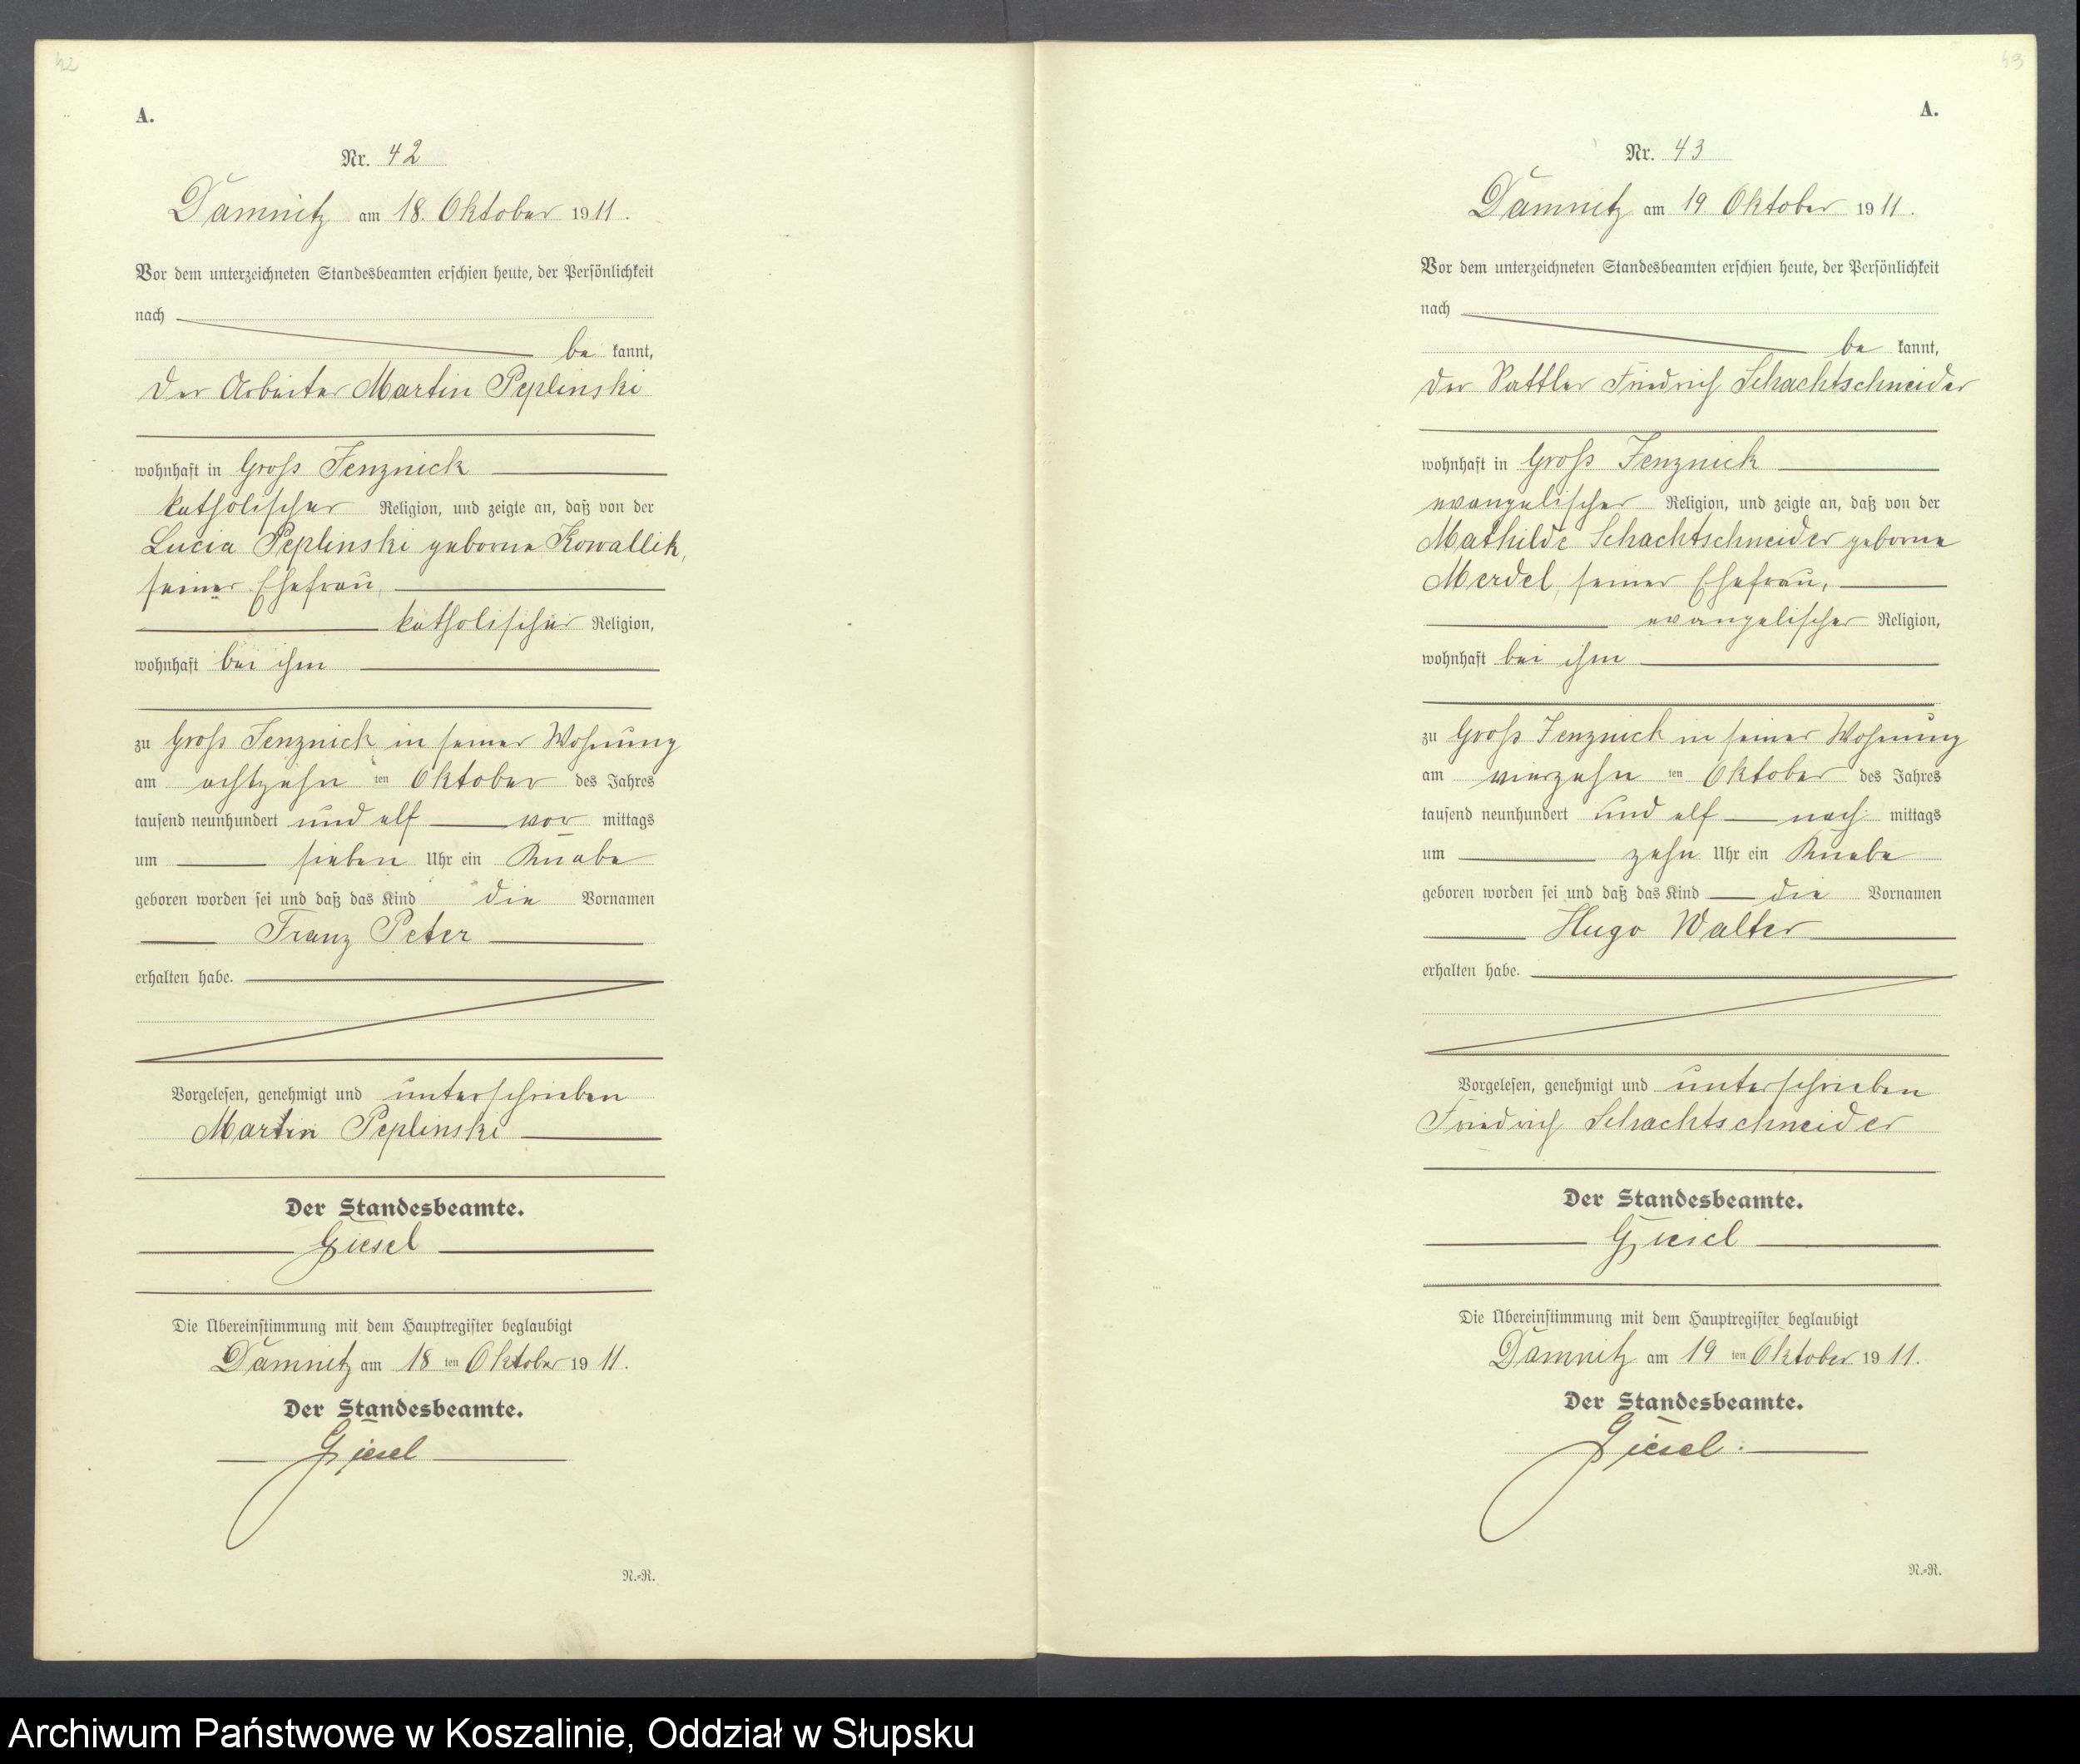 42
A.
Nr. 42
Damnitz am 18. Oktober 1911.
Vor dem unterzeichneten Standesbeamten erschien heute, der Persönlichkeit
nach
be kannt,
der Arbeiter Martin Peplinski
wohnhaft in Gross Jenznick
katholischer Religion, und zeigte an, daß von der
Lucia Peplinski geborne Kowallik,
seiner Ehefrau,
katholischer Religion,
wohnhaft bei ihm
zu Gross Jenznick in seiner Wohnung
am achtzehn ten Oktober des Jahres
tausend neunhundert und elf vor mittags
um sieben Uhr ein Knabe
geboren worden sei und daß das Kind die Vornamen
Franz Peter
erhalten habe.
Vorgelesen, genehmigt und unterschrieben
Martin Peplinski
Der Standesbeamte.
Giesel
Die Übereinstimmung mit dem Hauptregister beglaubigt
Damnitz am 18 ten Oktober 1911.
Der Standesbeamte.
Giesel
N.-R.
43
A.
Nr. 43
Damnitz am 19. Oktober 1911.
Vor dem unterzeichneten Standesbeamten erschien heute, der Persönlichkeit
nach
be kannt,
der Sattler Friedrich Schachtschneider
wohnhaft in Gross Jenznick
evangelischer Religion, und zeigte an, daß von der
Mathilde Schachtschneider geborne
Merdel, seiner Ehefrau,
evangelischer Religion,
wohnhaft bei ihm
zu Gross Jenznick in seiner Wohnung
am vierzehn ten Oktober des Jahres
tausend neunhundert und elf nach mittags
um zehn Uhr ein Knabe
geboren worden sei und daß das Kind die Vornamen
Hugo Walter
erhalten habe.
Vorgelesen, genehmigt und unterschrieben
Friedrich Schachtschneider
Der Standesbeamte.
Giesel
Die Übereinstimmung mit dem Hauptregister beglaubigt
Damnitz am 19 ten Oktober 1911.
Der Standesbeamte.
Giesel.
N.-R.
Archiwum Państwowe w Koszalinie, Oddział w Słupsku